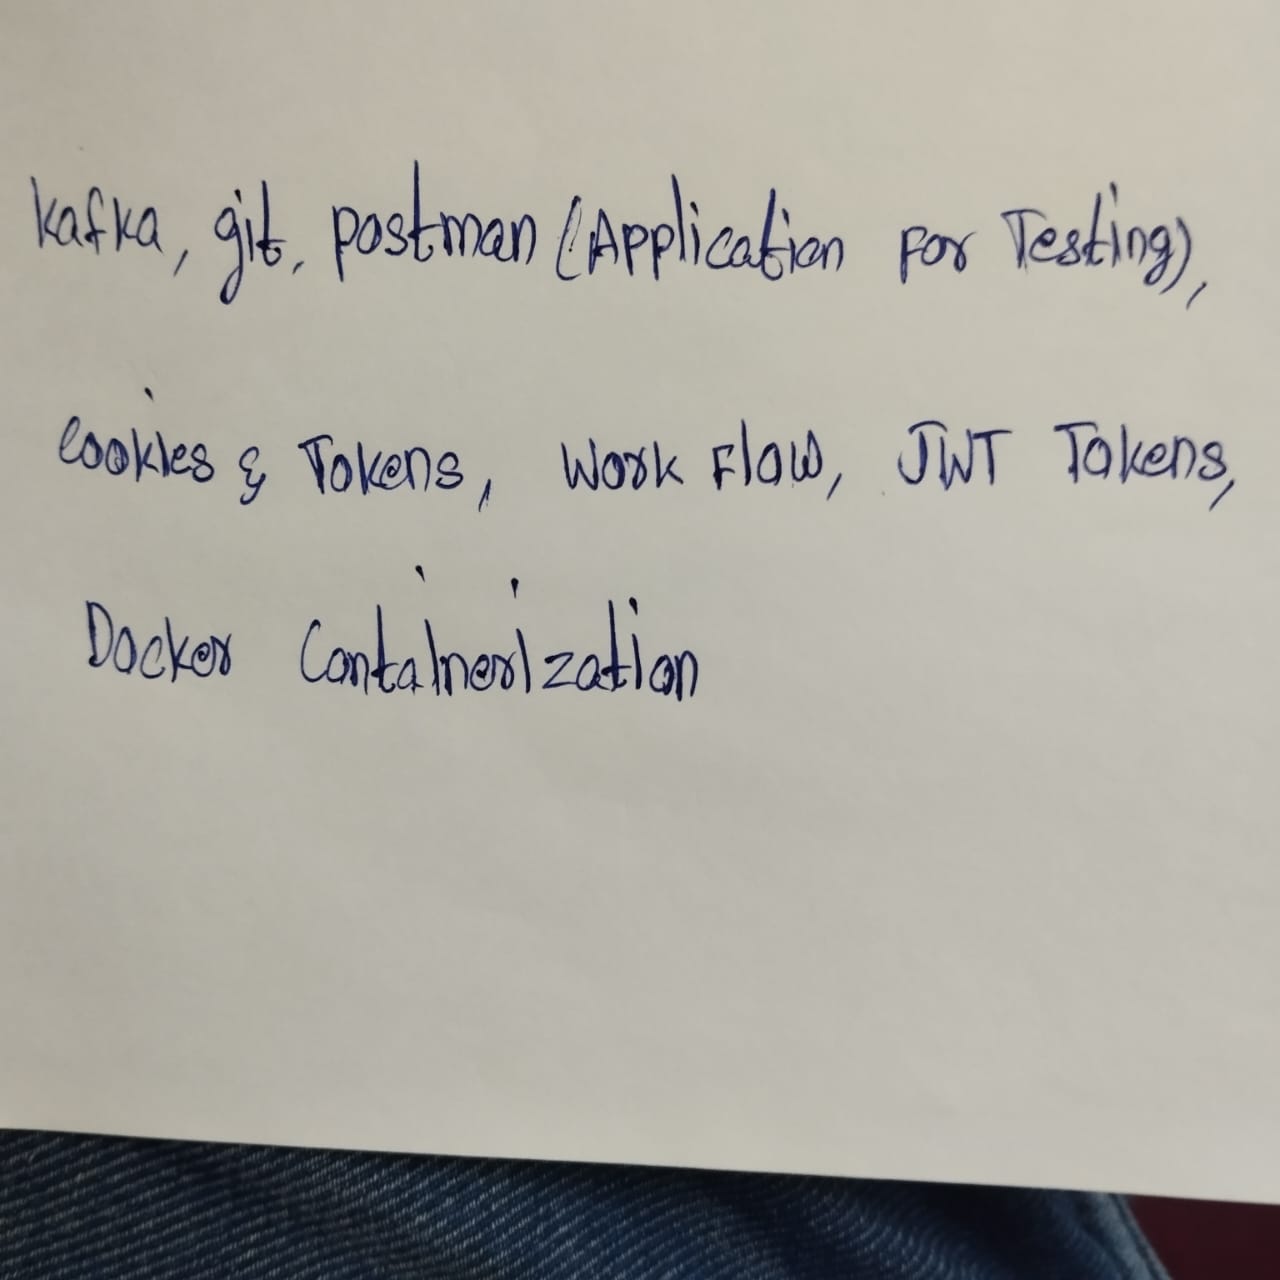 Kafka, git, postman (Application For Testing),
Cookies & Tokens, Work Flow, JWT Tokens,
Docker Containerization